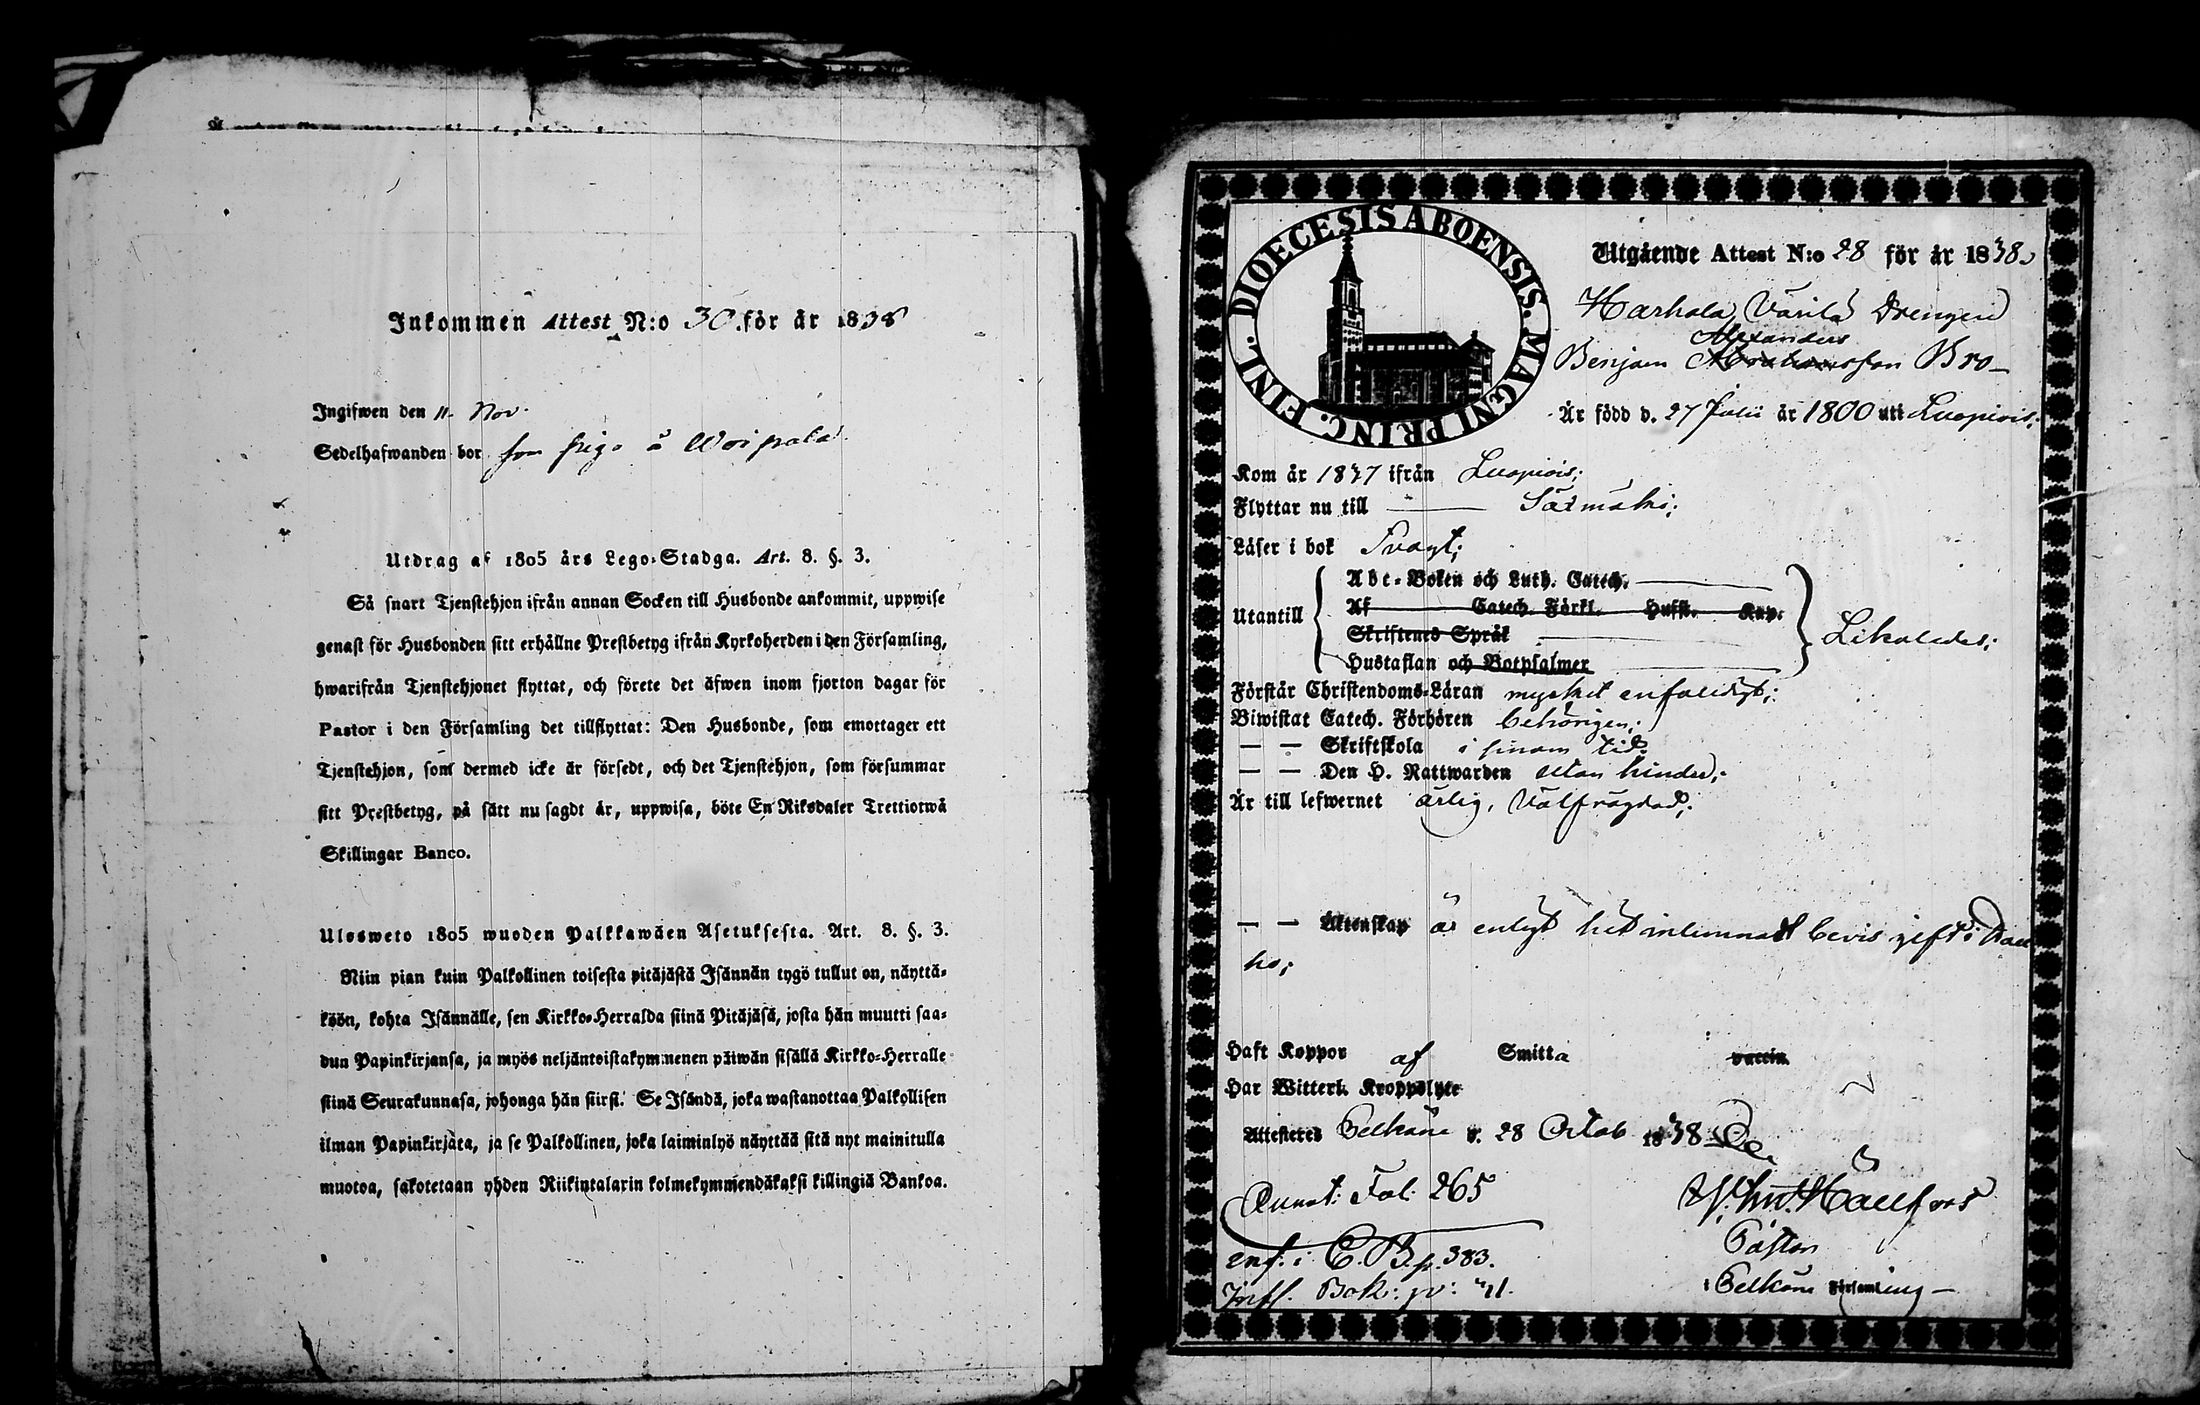 Inkommen Attest N:o 30. för år 1838
Ingifwen den 11. Nov.
Sedelhafwanden bor som piga å Woipala
Utdrag af 1805 års Lego-Stadga. Art. 8. §. 3.
Så snart Tjenstehjon ifrån annan Socken till Husbonde ankommit, uppwise
genast för Husbonden sitt erhållne Prestbetyg ifrån Kyrkoherden i den Församling,
hwarifrån Tjenstehjonet flyttat, och förete det äfwen inom fjorton dagar för
Pastor i den Församling det tillflyttat: Den Husbonde, som emottager ett
Tjenstehjon, som dermed icke är försedt, och det Tjenstehjon, som försummar
sitt Prestbetyg, på sätt nu sagdt är, uppwisa, böte En Riksdaler Trettiotwå
Skillingar Banco.
Ulosweto 1805 wuoden Palkkawäen Asetuksesta. Art. 8. §. 3.
Niin pian kuin Palkollinen toisesta pitäjästä Isännän tygö tullut on, näyttä-
köön, kohta Isännälle, sen Kirkko-Herralda siinä Pitäjäsä, josta hän muutti saa-
dun Papinkirjansa, ja myös neljäntoistakymmenen päiwän sisällä Kirkko-Herralle
siinä Seurakunnasa, johonga hän siirsi. Se Isändä, joka wastanottaa Palkollisen
ilman Papinkirjata, ja se Palkollinen, joka laiminlyö näyttää sitä nyt mainitulla
muotoa, sakotetaan yhden Riikintalarin kolmekymmendäkaksi killingiä Bankoa.
DIOECESIS ABOENSIS. MAGNI PRINC. FINL.
Utgående Attest N:o 28 för år 1838.
Harhala Warila Drengen
Alexanders
Benjam Abrahamsson Bro-
Är född d. 27 Julii år 1800 uti Luopiois;
Kom år 1837 ifrån Luopiois;
Flyttar nu till Säxmäki;
Läser i bok Svagt;
Utantill
Abc-Boken och Luth. Catech.
Af Catech. Förkl. Husst. Kap.
Skriftenes Språk
Hustaflan och Botpsalmer
Likaledes;
Förstår Christendoms-Läran mycket enfaldigt;
Biwistat Catech. Förhören behörigen;
— — Skriftskola i sinom tid.
— — Den H. Nattwarden utan hinder;
Är till lefwernet ärlig, välfrägdad;
— — Äktenskap är enligt hit inlemnadt bevis gift i
Haft Koppor af Smitta vaccin
Har Witterl. Kroppslyte
Attesteres Pelkäne d. 28 Octob 1838
Annot: Fol: 265
inf. i C. B. p. 383.
Infl. Bok: p:
Hællfors
Pastor
i Pelkäne Församling